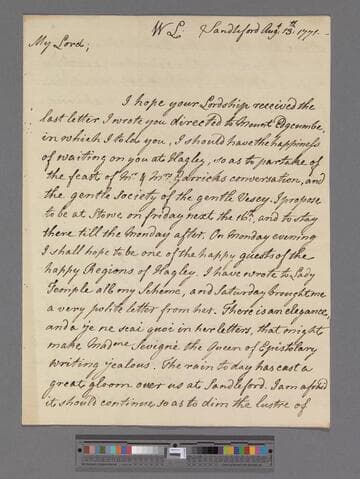 W L: Sandleford Augt 13th 1771.-
My Lord;
I hope your Lordship received the
last letter I wrote you directed to Mount Edgcumbe,
in which I told you, I should have the happiness
of waiting on you at Hagley, so as to partake of
the feast of Mr & Mrs Garricks conversation, and
the gentle Society of the gentle Vesey. I propose
to be at Stowe on friday next the 16th, and to stay
there till the Monday after. On Monday evening
I shall hope to be one of the happy guests of the
happy Regions of Hagley. I have wrote to Lady
Temple all my Scheme, and Saturday brought me
a very polite letter from her. There is an elegance,
and a je ne scai quoi in her letters, that might
make Madme Sevigné the Queen of Epistolary
writing jealous. The rain to day has cast a
great gloom over us at Sandleford. I am afraid
it should continue so as to dim the lustre of